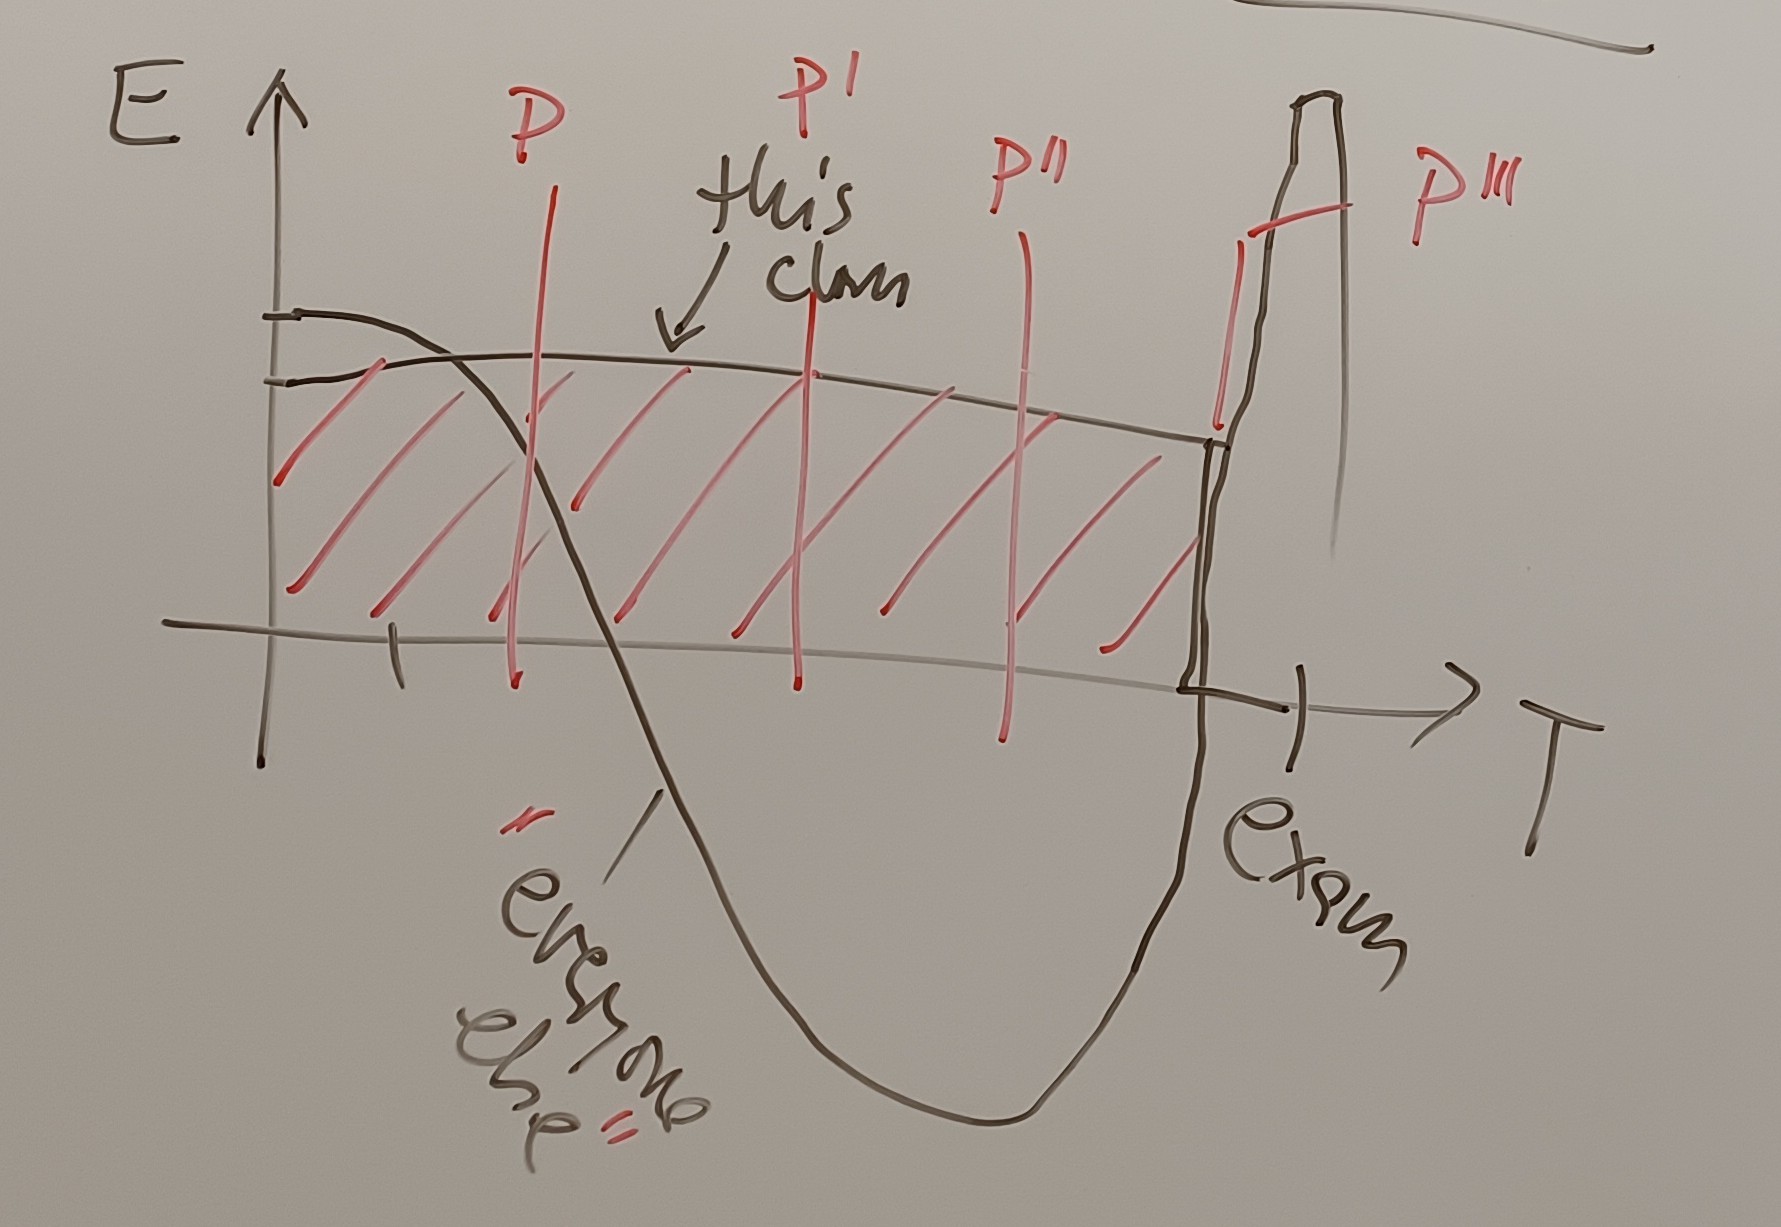 E
P
P'
P''
P'''
this
class
T
exam
"everyone
else"